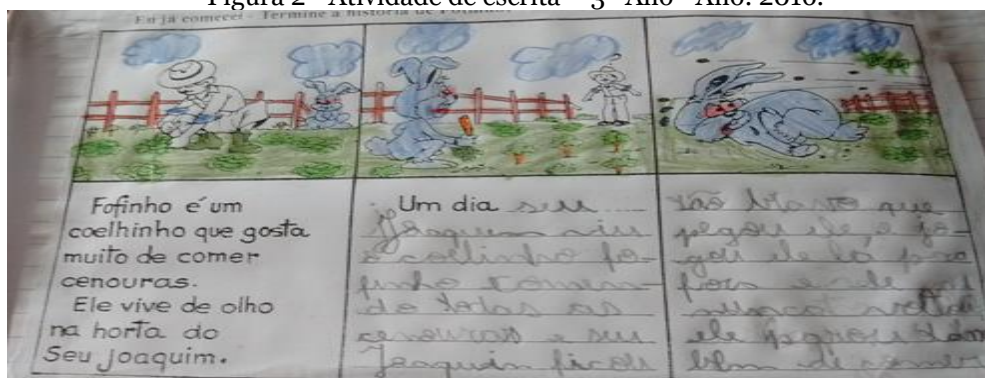 Figura 2 - Atividade de escrita - 3º Ano - Ano: 2016.
Eu já comecei - Termine a história de Fofinho
Fofinho é um
coelhinho que gosta
muito de comer
cenouras.
Ele vive de olho
na horta do
Seu Joaquim.
Um dia seu
Joaquim viu
o coelinho fo-
finho comen-
do todas as
cenouras e seu
Joaquim ficou
tão bravo que
pegou ele e jo-
gou ele lá para
fora e ele
nunca
ele
bem de comer